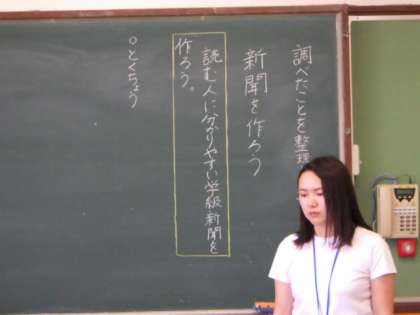 調べたことを整理
新聞を作ろう
読む人に分かりやすい学級新聞を
作ろう。
○とくちょう